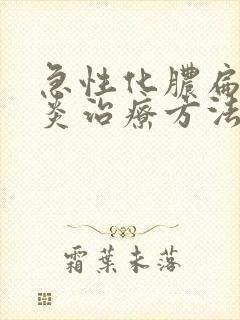 急性化膿扁
炎治療方法
霜葉未落